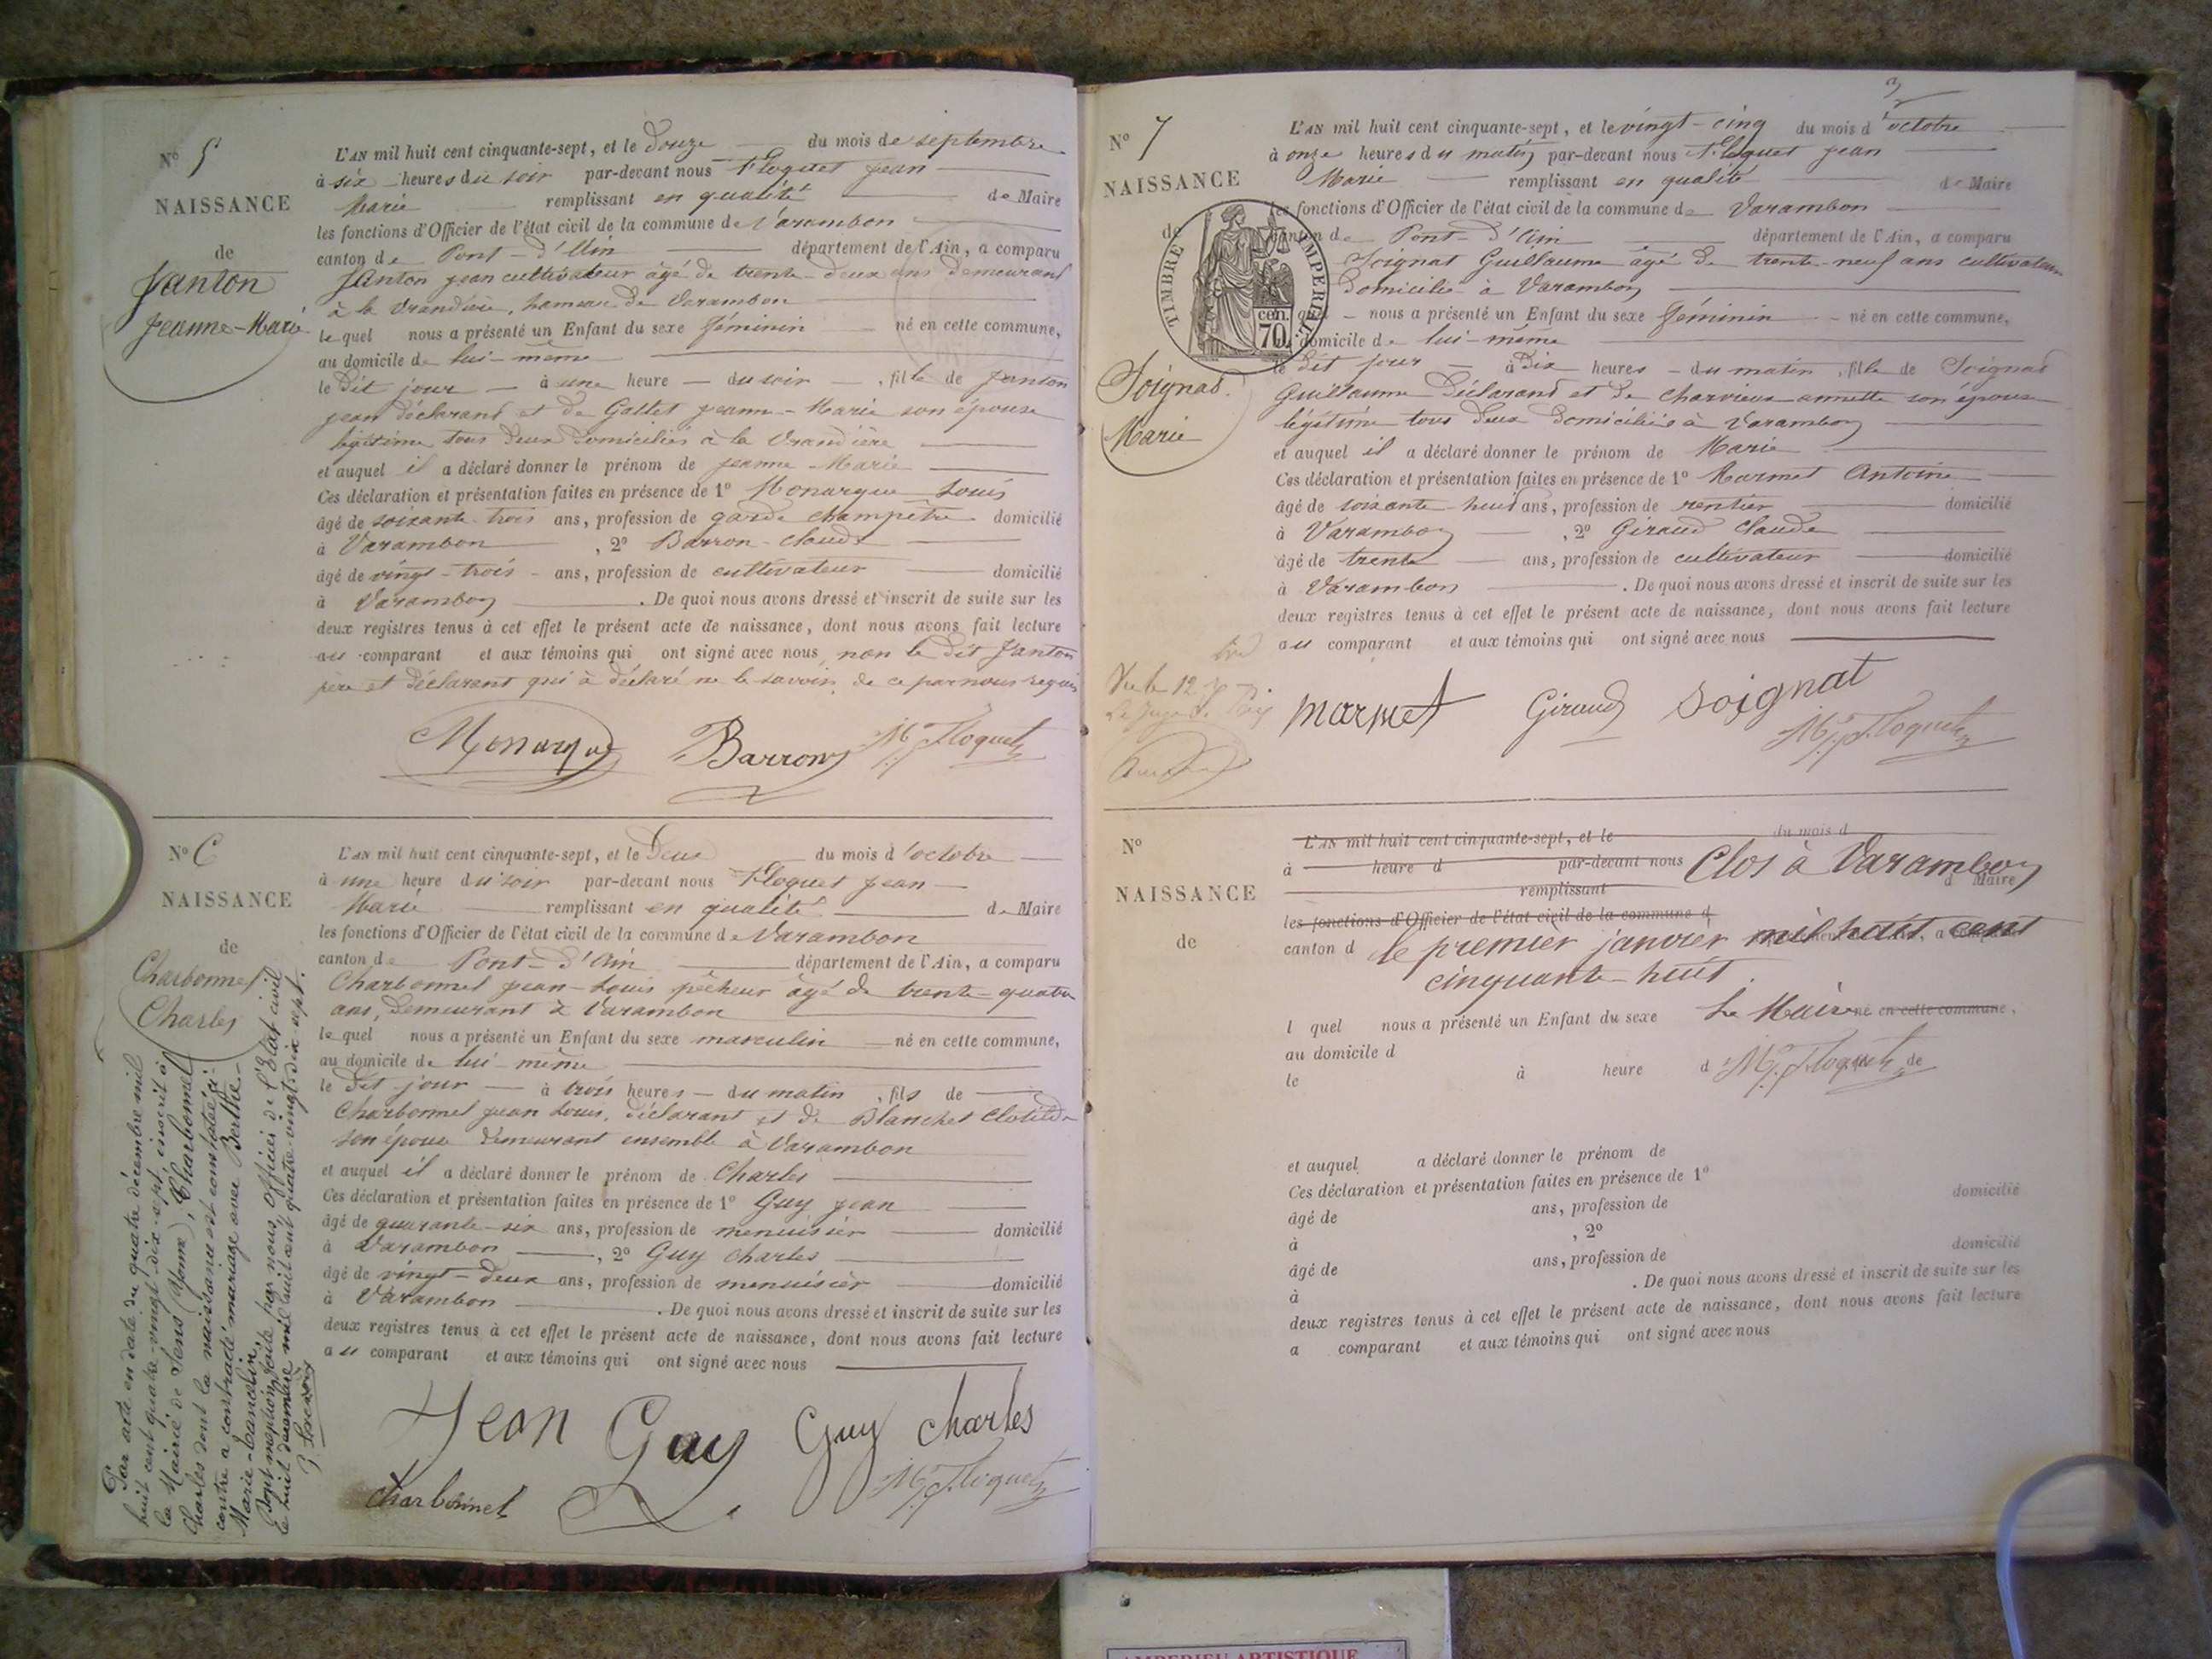 N° 5
NAISSANCE
de
Janton
Jeanne-Marie
L'AN mil huit cent cinquante-sept, et le Douze du mois de septembre
à six heures du soir par-devant nous Floquet Jean
Marie remplissant en qualité de Maire
les fonctions d'Officier de l'état civil de la commune de Varambon
canton de Pont-d'Ain département de l'Ain, a comparu
Janton jean cultivateur âgé de trente-deux ans demeurant
à la Vrandière, hameau de Varambon
le quel nous a présenté un Enfant du sexe féminin né en cette commune,
au domicile de lui-même
le dit jour à une heure du soir, fille de Janton
jean déclarant et de Gallet jeanne-Marie son épouse
légitime tous deux domiciliés à la Vrandière
et auquel il a déclaré donner le prénom de jeanne-Marie
Ces déclaration et présentation faites en présence de 1° Monarque Louis
âgé de soixante-trois ans, profession de garde champêtre domicilié
à Varambon, 2° Barron Claude
âgé de vingt-trois ans, profession de cultivateur domicilié
à Varambon. De quoi nous avons dressé et inscrit de suite sur les
deux registres tenus à cet effet le présent acte de naissance, dont nous avons fait lecture
au comparant et aux témoins qui ont signé avec nous, non le dit Janton
père et déclarant qui à déclaré ne le savoir, de ce par nous requis
Monarque Barron M J Floquet
N° 6
NAISSANCE
de
Charbonnel
Charles
L'AN mil huit cent cinquante-sept, et le Deux du mois d'octobre
à une heure du soir par-devant nous Floquet jean
Marie remplissant en qualité de Maire
les fonctions d'Officier de l'état civil de la commune de Varambon
canton de Pont-d'Ain département de l'Ain, a comparu
Charbonnel jean-Louis pêcheur âgé de trente-quatre
ans, demeurant à Varambon
le quel nous a présenté un Enfant du sexe masculin né en cette commune,
au domicile de lui-même
le dit jour à trois heures du matin, fils de
Charbonnel jean Louis, déclarant et de Blanchet Clotilde
son épouse demeurant ensemble à Varambon
et auquel il a déclaré donner le prénom de Charles
Ces déclaration et présentation faites en présence de 1° Guy jean
âgé de quarante-six ans, profession de menuisier domicilié
à Varambon, 2° Guy Charles
âgé de vingt-deux ans, profession de menuisier domicilié
à Varambon. De quoi nous avons dressé et inscrit de suite sur les
deux registres tenus à cet effet le présent acte de naissance, dont nous avons fait lecture
au comparant et aux témoins qui ont signé avec nous
Jean Guy Guy Charles
Charbonnel M J Floquet
Par acte en date du quatre décembre mil
huit cent quatre-vingt-dix-sept, inscrit à
la Mairie de Sens (Yonne), Charbonnel
Charles dont la naissance est constatée ci-
contre a contracté mariage avec Berthe
Marie Lancelin.
Dont mention faite par nous, officier de l'État civil
le huit décembre mil huit cent quatre-vingt-dix-sept.
3
N° 7
NAISSANCE
de
Soignat
Marie
TIMBRE IMPERIAL
70 cen.
L'AN mil huit cent cinquante-sept, et le vingt-cinq du mois d'octobre
à onze heures du matin par-devant nous Floquet jean
Marie remplissant en qualité de Maire
les fonctions d'Officier de l'état civil de la commune de Varambon
canton de Pont-d'Ain département de l'Ain, a comparu
Soignat Guillaume âgé de trente-neuf ans cultivateur
domicilié à Varambon
quel nous a présenté un Enfant du sexe féminin né en cette commune,
domicile de lui-même
le dit jour à dix heures du matin, fille de Soignat
Guillaume déclarant et de Charvieux annette son épouse
légitime tous deux domiciliés à Varambon
et auquel il a déclaré donner le prénom de Marie
Ces déclaration et présentation faites en présence de 1° Marmet Antoine
âgé de soixante-huit ans, profession de rentier domicilié
à Varambon, 2° Giraud Claude
âgé de trente ans, profession de cultivateur domicilié
à Varambon. De quoi nous avons dressé et inscrit de suite sur les
deux registres tenus à cet effet le présent acte de naissance, dont nous avons fait lecture
au comparant et aux témoins qui ont signé avec nous
Vu le 12
Le juge de Paix
marmet Giraud Soignat
M J Floquet
N°
NAISSANCE
de
L'AN mil huit cent cinquante-sept, et le du mois d
à heure d par-devant nous Clos à Varambon
remplissant d Maire
les fonctions d'Officier de l'état civil de la commune d
canton d le premier janvier mil huit cent
cinquante-huit.
l quel nous a présenté un Enfant du sexe Le Maire né en cette commune,
au domicile d
le à heure d M J Floquet de
et auquel a déclaré donner le prénom de
Ces déclaration et présentation faites en présence de 1°
âgé de ans, profession de domicilié
à , 2°
âgé de ans, profession de domicilié
à . De quoi nous avons dressé et inscrit de suite sur les
deux registres tenus à cet effet le présent acte de naissance, dont nous avons fait lecture
a comparant et aux témoins qui ont signé avec nous
AMBERIEU ARTISTIQUE